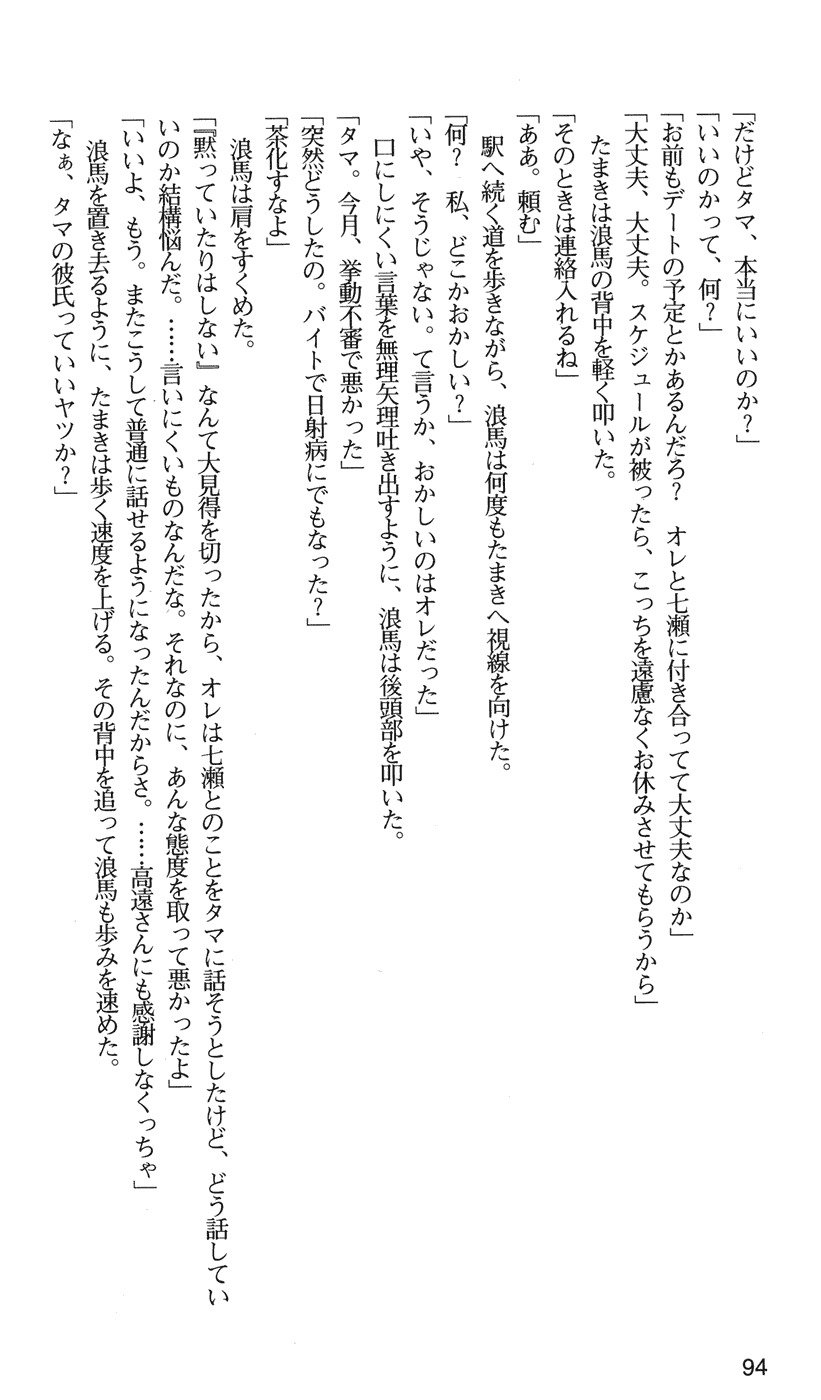 「だけどタマ、本当にいいのか？」
「いいのかって、何？」
「お前もデートの予定とかあるんだろ？　オレと七瀬に付き合ってて大丈夫なのか」
「大丈夫、大丈夫。スケジュールが被ったら、こっちを遠慮なくお休みさせてもらうから」
　たまきは浪馬の背中を軽く叩いた。
「そのときは連絡入れるね」
「ああ。頼む」
　駅へ続く道を歩きながら、浪馬は何度もたまきへ視線を向けた。
「何？　私、どこかおかしい？」
「いや、そうじゃない。て言うか、おかしいのはオレだった」
　口にしにくい言葉を無理矢理吐き出すように、浪馬は後頭部を叩いた。
「タマ。今月、挙動不審で悪かった」
「突然どうしたの。バイトで日射病にでもなった？」
「茶化すなよ」
　浪馬は肩をすくめた。
「『黙っていたりはしない』なんて大見得を切ったから、オレは七瀬とのことをタマに話そうとしたけど、どう話してい
いのか結構悩んだ。……言いにくいものなんだな。それなのに、あんな態度を取って悪かったよ」
「いいよ、もう。またこうして普通に話せるようになったんだからさ。……高遠さんにも感謝しなくっちゃ」
　浪馬を置き去るように、たまきは歩く速度を上げる。その背中を追って浪馬も歩みを速めた。
「なぁ、タマの彼氏っていいヤツか？」
94